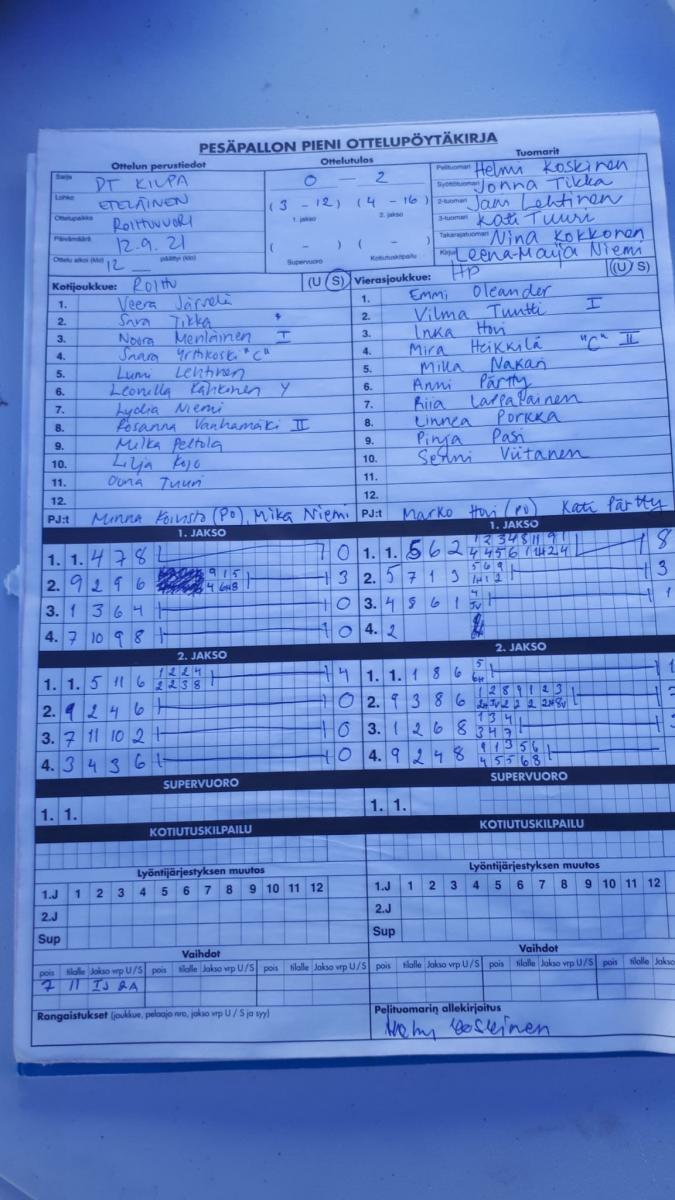 PESÄPALLON PIENI OTTELUPÖYTÄKIRJA
Ottelun perustiedot
Ottelutulos
Tuomarit
Sarja DT KILPA
Lohko ETELÄINEN
Ottelupaikka ROIHUVUORI
Päivämäärä 12.9.21
Ottelu alkoi (klo) 12 päättyi (klo)
0 — 2
(3 - 12) (4 - 16)
1. jakso 2. jakso
( - ) ( - )
Supervuoro Kotiutuskilpailu
Pelituomari Helmi Koskinen
Syöttötuomari Jonna Tikka
2-tuomari Jani Lehtinen
3-tuomari Kati Tuuri
Takarajatuomari Nina Kokkonen
Kirjuri Leena-Maija Niemi
Kotijoukkue: ROIHU (U S)
1. Veera Järvelä
2. Sara Tikka
3. Noora Meriläinen I
4. Saara "C"
5. Lumi Lehtinen
6. Leonilla Kähkönen Y
7. Lydia Niemi
8. Rosanna Vanhamäki II
9. Milka Peltola
10. Lilja Kojo
11. Oona Tuuri
12.
PJ:t Minna Koivisto (PO), Mika Niemi
Vierasjoukkue: HP (U S)
1. Emmi Oleander
2. Vilma Tuutti I
3. Inka Hovi
4. Mira Heikkilä "C" II
5. Milla Nakari
6. Anni Pärtty
7. Riia Lappalainen
8. Linnea Porkka
9. Pinja Pasi
10. Senni Viitanen
11.
12.
PJ:t Marko Hovi (PO) Kati Pärtty
1. JAKSO
1. 1. 4 7 8 0
2. 9 2 9 6 9 1 5 3
4 6H8
3. 1 3 6 4 0
4. 7 10 9 8 0
1. JAKSO
1. 1. 5 6 2 8
2. 5 7 1 3 5 6 9 3
3. 4 8 6 1 4 1
4. 2
2. JAKSO
1. 1. 5 11 6 1 2 2 4 4
2 2 3 8
2. 9 2 4 6 0
3. 7 11 10 2 0
4. 3 4 3 6 0
2. JAKSO
1. 1. 1 8 6 5 1
6H
2. 9 3 8 6 1 2 8 9 1 2 3
3. 1 2 6 8 1 3 4
3 4 7
4. 9 2 4 8 9 1 3 5 6
4 5 5 6 8
SUPERVUORO
1. 1.
SUPERVUORO
1. 1.
KOTIUTUSKILPAILU
KOTIUTUSKILPAILU
Lyöntijärjestyksen muutos
1.J 1 2 3 4 5 6 7 8 9 10 11 12
2.J
Sup
Lyöntijärjestyksen muutos
1.J 1 2 3 4 5 6 7 8 9 10 11 12
2.J
Sup
Vaihdot
pois tilalle Jakso vrp U/S pois tilalle Jakso vrp U/S pois tilalle Jakso vrp U/S
7 11 IJ 2A
Vaihdot
pois tilalle Jakso vrp U/S pois tilalle Jakso vrp U/S pois tilalle Jakso vrp
Rangaistukset (joukkue, pelaaja nro, jakso vrp U / S ja syy)
Pelituomarin allekirjoitus
Helmi Koskinen